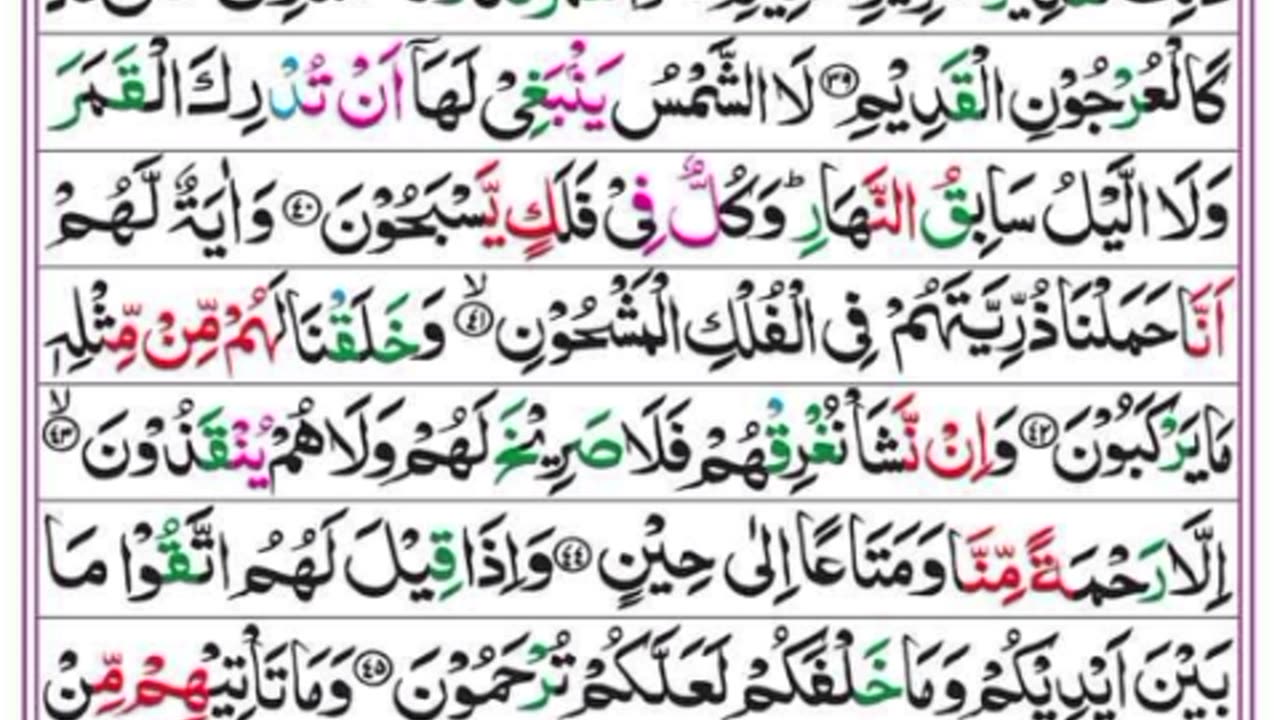 كَالْعُرْجُوْنِ الْقَدِيْمِ ﴿٣٩﴾ لَا الشَّمْسُ يَنْۢبَغِيْ لَهَاۤ اَنْ تُدْرِكَ الْقَمَرَ
وَلَا الَّيْلُ سَابِقُ النَّهَارِ ؕ وَكُلٌّ فِيْ فَلَكٍ يَّسْبَحُوْنَ ﴿٤٠﴾ وَاٰيَةٌ لَّهُمْ
اَنَّا حَمَلْنَا ذُرِّيَّتَهُمْ فِي الْفُلْكِ الْمَشْحُوْنِ ﴿٤١﴾ۙ وَخَلَقْنَا لَهُمْ مِّنْ مِّثْلِهٖ
مَا يَرْكَبُوْنَ ﴿٤٢﴾ وَاِنْ نَّشَاْ نُغْرِقْهُمْ فَلَا صَرِيْخَ لَهُمْ وَلَا هُمْ يُنْقَذُوْنَ ﴿٤٣﴾ۙ
اِلَّا رَحْمَةً مِّنَّا وَمَتَاعًا اِلٰى حِيْنٍ ﴿٤٤﴾ وَاِذَا قِيْلَ لَهُمُ اتَّقُوْا مَا
بَيْنَ اَيْدِيْكُمْ وَمَا خَلْفَكُمْ لَعَلَّكُمْ تُرْحَمُوْنَ ﴿٤٥﴾ وَمَا تَاْتِيْهِمْ مِّنْ